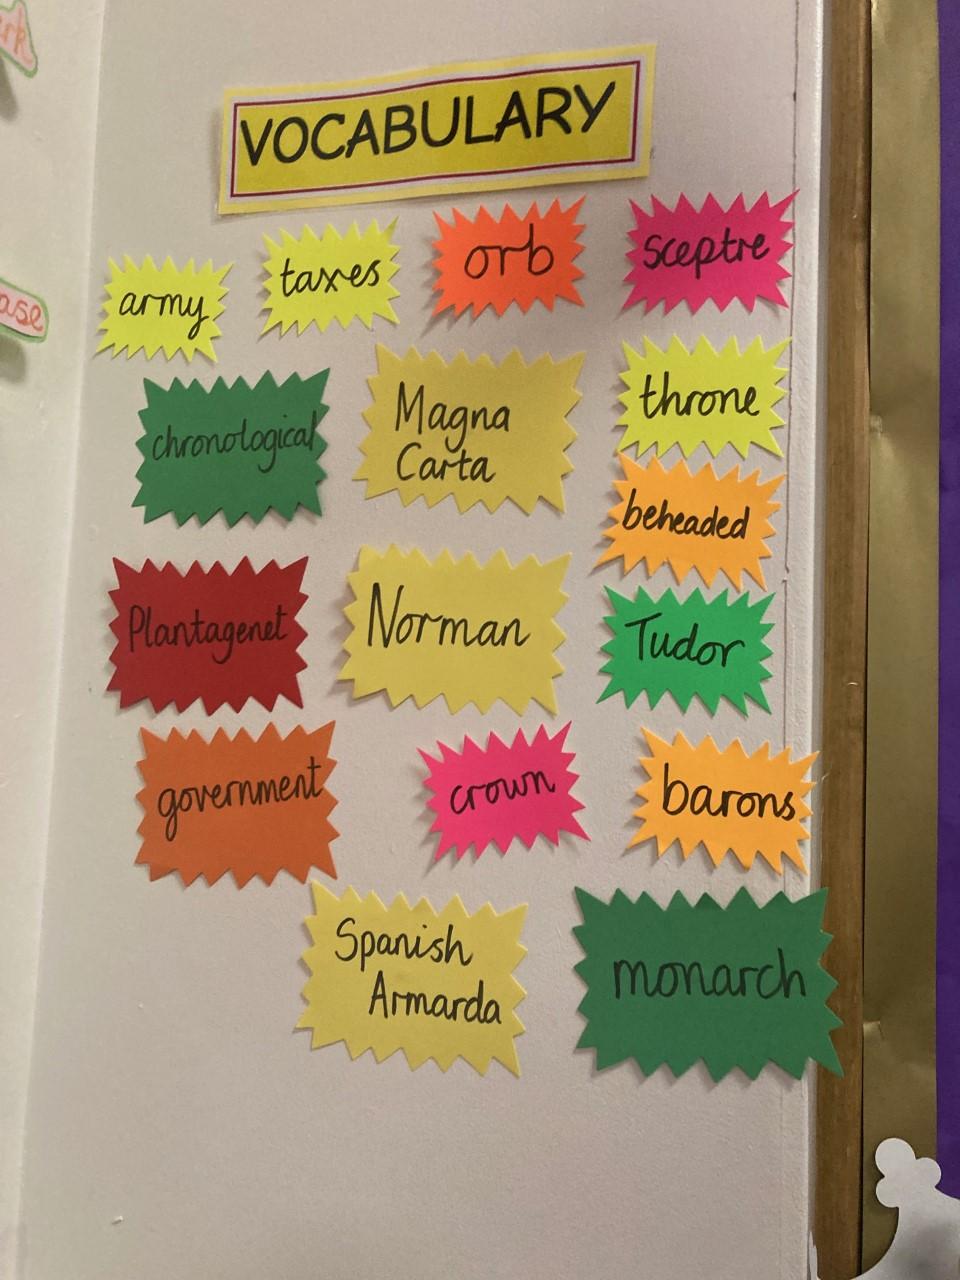 VOCABULARY
army
taxes
orb
sceptre
chronological
Magna
Carta
throne
beheaded
Plantagenet
Norman
Tudor
government
crown
barons
Spanish
Armarda
monarch